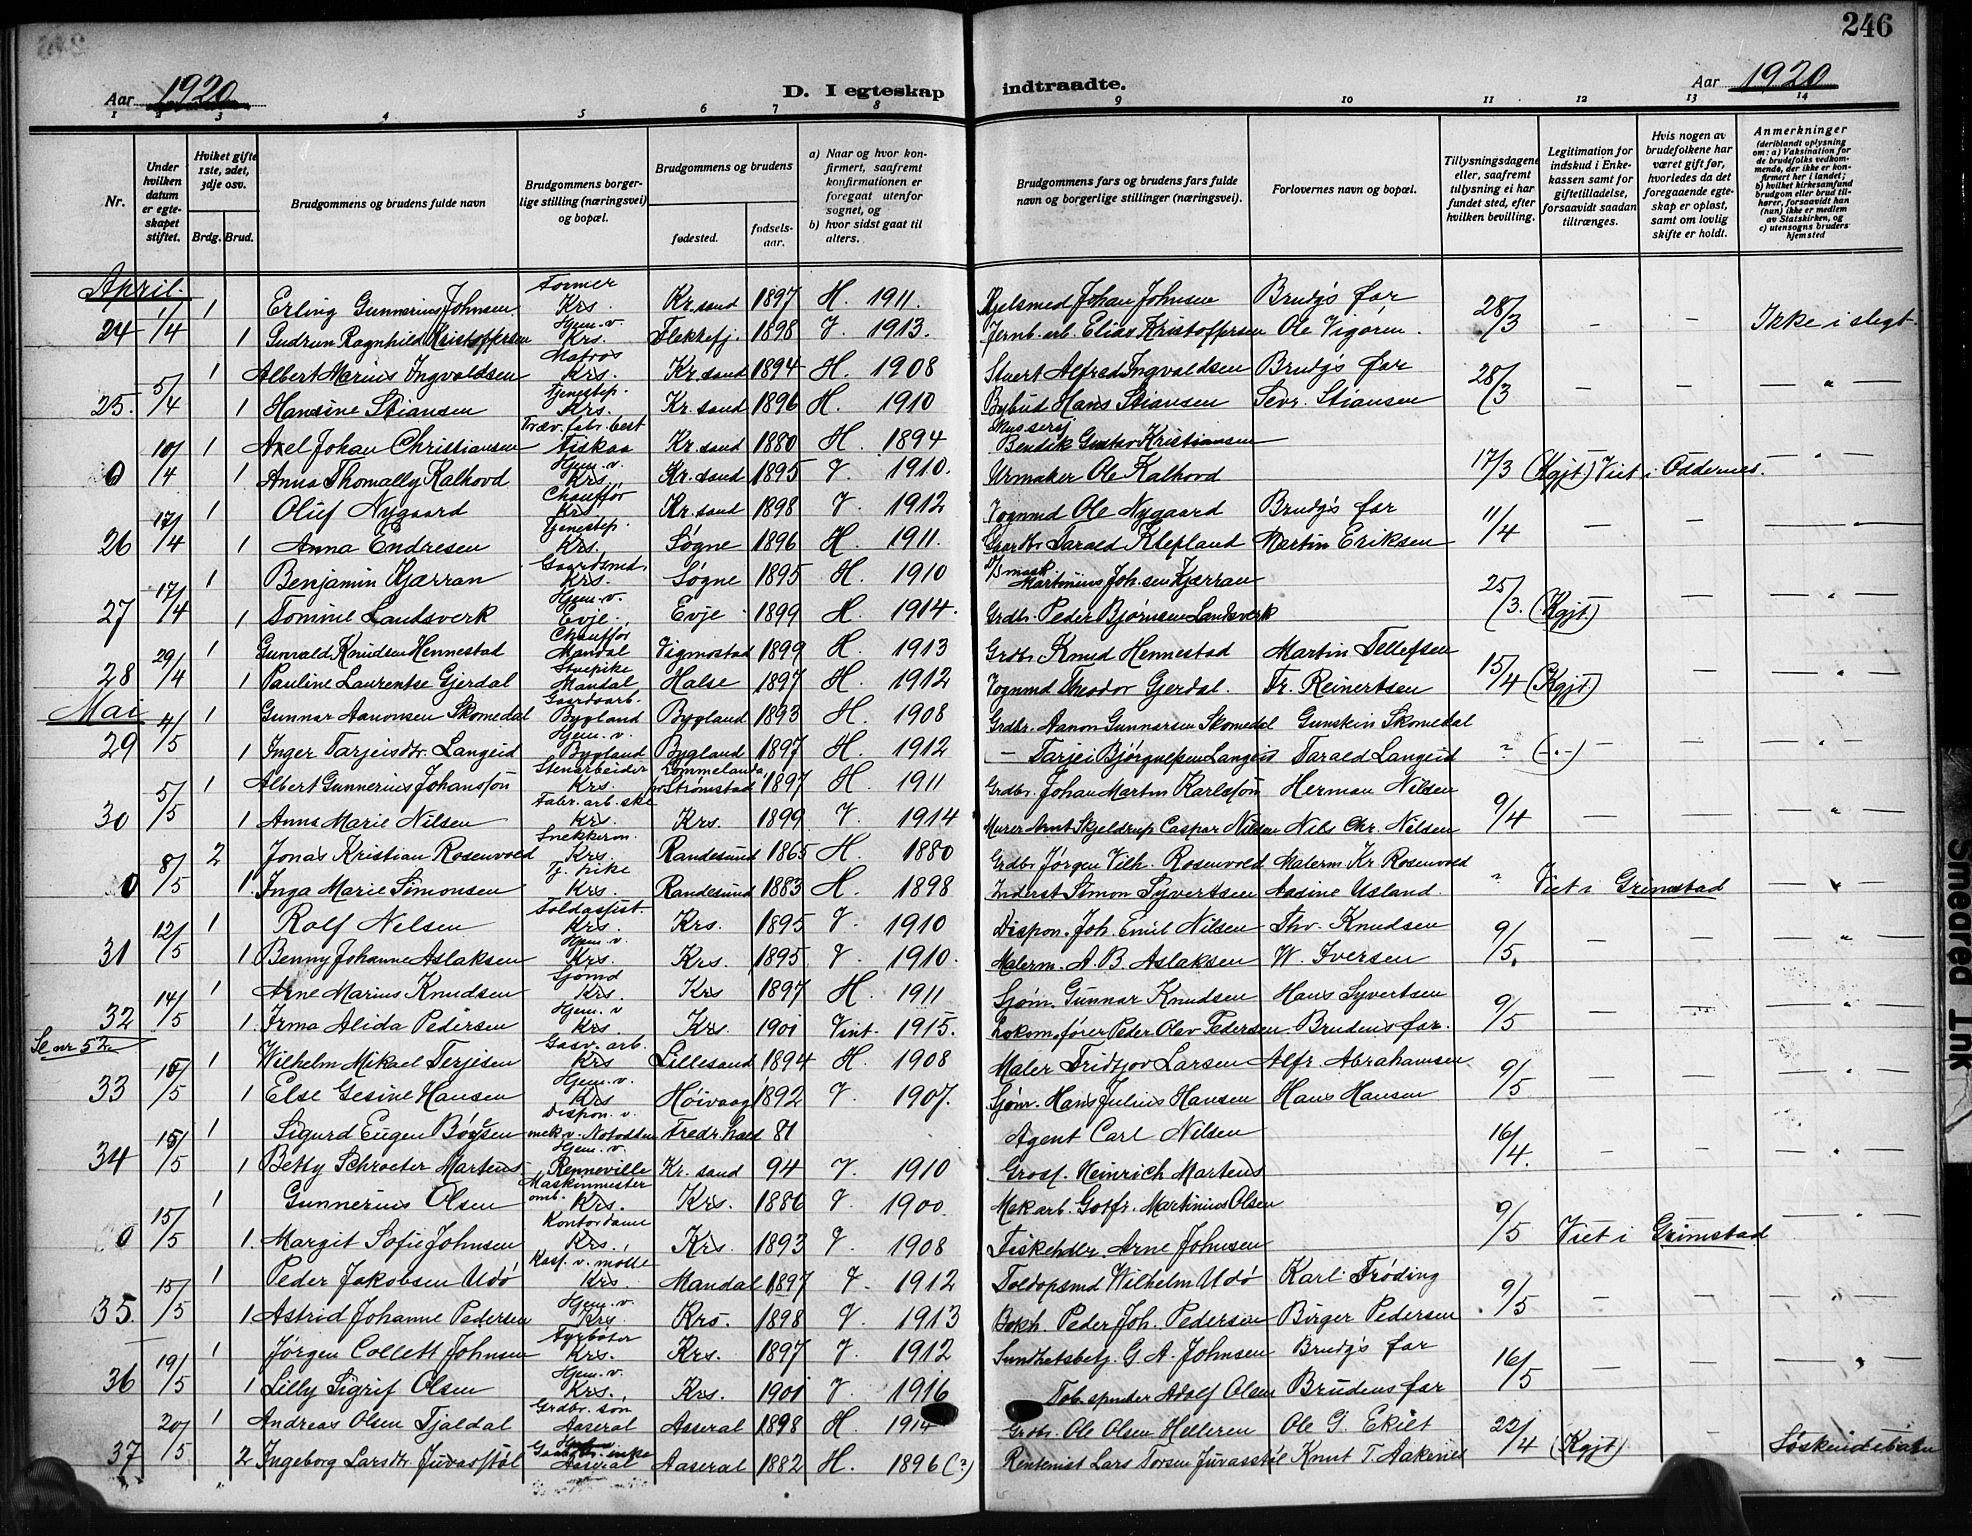 246
Aar 1920 D. I egteskap indtraadte. Aar 1920
1 2 3 4 5 6 7 8 9 10 11 12 13 14
Nr.
Under hvilken datum er egteskapet stiftet.
Hvilket gifte 1ste, 2det, 3dje osv.
Brdg. Brud.
Brudgommens og brudens fulde navn
Brudgommens borgerlige stilling (næringsvei) og bopæl.
Brudgommens og brudens
fødested. fødselsaar.
a) Naar og hvor konfirmert, saafremt konfirmationen er foregaat utenfor sognet, og
b) hvor sidst gaat til alters.
Brudgommens fars og brudens fars fulde navn og borgerlige stillinger (næringsvei).
Forlovernes navn og bopæl.
Tillysningsdagene eller, saafremt tillysning ei har fundet sted, efter hvilken bevilling.
Legitimation for indskud i Enkekassen samt for giftetilladelse, forsaavidt saadan tiltrænges.
Hvis nogen av brudefolkene har været gift før, hvorledes da det foregaaende egteskap er opløst, samt om lovlig skifte er holdt.
Anmerkninger (deriblandt oplysning om: a) Vaksination for de brudefolks vedkommende, der ikke er konfirmert her i landet; b) hvilket kirkesamfund brudgom eller brud tilhører, forsaavidt han (hun) ikke er medlem av Statskirken, og c) utensogns bruders hjemsted
April.
1/4 1 Erling Gunnerius Johnsen Former Krs Kr.sand 1897 H. 1911. Kjelsmed Johan Johnsen Brudg's far 28/3
24 1 Gudrun Ragnhild Kristoffersen Hjem.v. Krs. Flekkefj. 1898 V. 1913. Jernb. arb. Elias Kristoffersen Ole Vigøren. – – Ikke i slegt
5/4 1 Albert Marius Ingvaldsen Matros Krs. Kr.sand 1894 H. 1908 Stuert Alfred Ingvaldsen Brudg's far 28/3
25. 1 Hansine Stiansen Tjenestep. Krs. Kr.sand 1896 H. 1910 Bybud Hans Stiansen Sevr. Stiansen – – "
10/4 1 Axel Johan Christiansen Træv. fabr. best Fiskaa Kr.sand 1880 H. 1894 Bendik Gustav Kristiansen
0 1 Anna Thomally Kalhovd Hjem.v. Krs. Kr.sand 1895 V. 1910. Urmaker Ole Kalhovd 17/3 (Kgjt) Viet i Oddernes. – " –
17/4 1 Oluf Nygaard Chauffør Krs Kr.sand 1898 V. 1912 Vognmd Ole Nygaard Brudg's far 11/4
26 1 Anna Endresen Tjenestep. Krs. Søgne 1896 H. 1911. Gaardbr. Tarald Klepland Martin Eriksen – – –
17/4 1 Benjamin Kjærran Gaardsmd. Krs. Søgne 1895 H. 1910 Martinius Joh.sen Kjærran 25/3.
27 1 Tomine Landsverk Hjem.v. Evje. Evje 1899 H. 1914. Grdbr. Peder Bjørnsen Landsverk (Kgjt.) – "
29/4 1 Gunvald Knudsen Hennestad Chauffør Mandal Vigmostad 1899 H. 1913 Grdbr. Knud Hennestad Martin Tellefsen 15/4
28 1 Pauline Laurentse Gjerdal Stuepike Mandal Halse 1897 H. 1912 Vognmd Theodor Gjerdal. Fr. Reinertsen (Kgjt.) – "
Mai
4/5 1 Gunnar Aanonsen Skomedal Gaardsarb. Bygland Bygland 1893 H. 1908 Grdbr. Aanon Gunnarsen Skomedal Gunstein Skomedal
29 1 Inger Tarjeisdtr. Langeid Hjem.v. Bygland Bygland 1897 H. 1912 – Tarjei Bjørgulfsen Langeid Tarald Langeid " (–"–) – –
5/5 1 Albert Gunnerius Johansson Stenarbeider Krs. Lommelanda pr Strömstad 1897 H. 1911 Grdbr. Johan Martin Karlsson Herman Nilsen 9/4
30 1 Anna Marie Nilsen Fabr. arb.ske Kr. Krs. 1899 V. 1914 Murer Arnt Skjeldrup Caspar Nilsen Nils Chr. Nilsen – – "
8/5 2 Jonas Kristian Rosenvold Snekkerm. Krs. Randesund 1865 H. 1880 Grdbr. Jørgen Vilh. Rosenvold Malerm. Kr. Rosenvold
0 1. Inga Marie Simonsen Tj. pike Krs. Randesund 1883 H. 1898 Inderst Simon Syvertsen Aasine Usland. " Viet i Grimstad "
12/5 1 Rolf Nilsen Toldassist. Krs. Krs. 1895 V. 1910 Dispon. Joh. Emil Nilsen Thv. Knudsen 9/5.
31 1 Benny Johanne Aslaksen Hjem.v. Krs. Krs. 1895 V. 1910. Malerm. A. B. Aslaksen W. Iversen – – "
14/5 1 Arne Marius Knudsen Sjømd Krs. Krs 1897 H. 1911 Sjøm. Gunnar Knudsen Hans Syvertsen 9/5
32 1. Irma Alida Pedersen Hjem.v Krs. Krs. 1901 Vint. 1915. Lokom.fører Peder Olav Pedersen Brudens far. – – "
Se nr 52
15/5 1 Wilhelm Mikael Terjesen Gasv. arb. Krs Lillesand 1894 H. 1908 Maler Fridtjov Larsen Alfr. Abrahamsen 9/5
33 1 Else Gesine Hansen Hjem.v. Krs Høivaag 1892 V. 1907. Sjøm. Hans Julius Hansen Hans Hansen – – "
15/5 1 Sigurd Eugen Bøysen Dispon. v. mek.v. Notodden Fredr.hald 81 Agent Carl Nilsen 16/4.
34 1 Betty Schroeter Martens Hjem.v. Renneville Kr.sand 94 V. 1910 Gross. Heinrich Martens – – "
15/5 1 Gunnerius Olsen Maskinmester omb. Krs. Krs. 1886 V. 1900 Mek arb. Gotfr. Martinius Olsen 9/5
0 1. Margit Sofie Johnsen Kontordame Krs. Krs. 1893 V. 1908 Fiskehdler. Arne Johnsen Viet i Grimstad "
15/5 1 Peder Jakobsen Udø Kass. v. mølle Krs Mandal 1897 V. 1912 Toldopsmd Wilhelm Udø Karli Frøding 9/5
35. 1 Astrid Johanne Pedersen Hjem.v. Krs. Krs. 1898 V. 1913 Bokh. Peder Joh. Pedersen Birger Pedersen – – "
19/5 1 Jørgen Collett Johnsen Fyrbøter Krs. Krs. 1897 V. 1912 Sundhetsbetj. G. A. Johnsen Brudg's far 16/5
36 1 Lilly Sigrif Olsen Hjem.v. Krs. Krs. 1901 V. 1916 Tob. spinder Adolf Olsen Brudens far – – "
20/5 1 Andreas Olsen Tjaldal Grdbr. søn Aaseral Aaseral 1898 H. 1914 Grdbr. Ole Olsen Helleren Ole G. Ekilt 22/4
37 2 Ingeborg Larsdtr. Juvasstøl Gaardbr. enke Aaseral Aaseral 1882 H. 1896 (?) Rentenist Lars Torsen Juvasstøl Knut T. Aaknes (Kgjt) – Søskendebarn
Smeared Ink